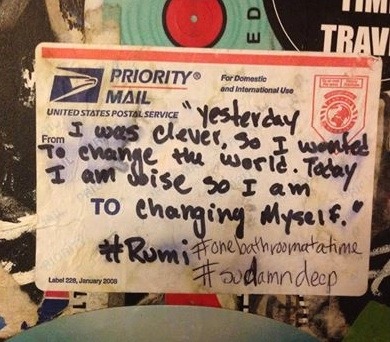 TIM
TRAV
ED
PRIORITY®
MAIL
UNITED STATES POSTAL SERVICE
For Domestic
and International Use
From
"Yesterday
I was clever, so I wanted
To change the world. Today
I am wise so I am
TO changing Myself."
#Rumi #onebathroomatatime
#sodamndeep
Label 228, January 2008